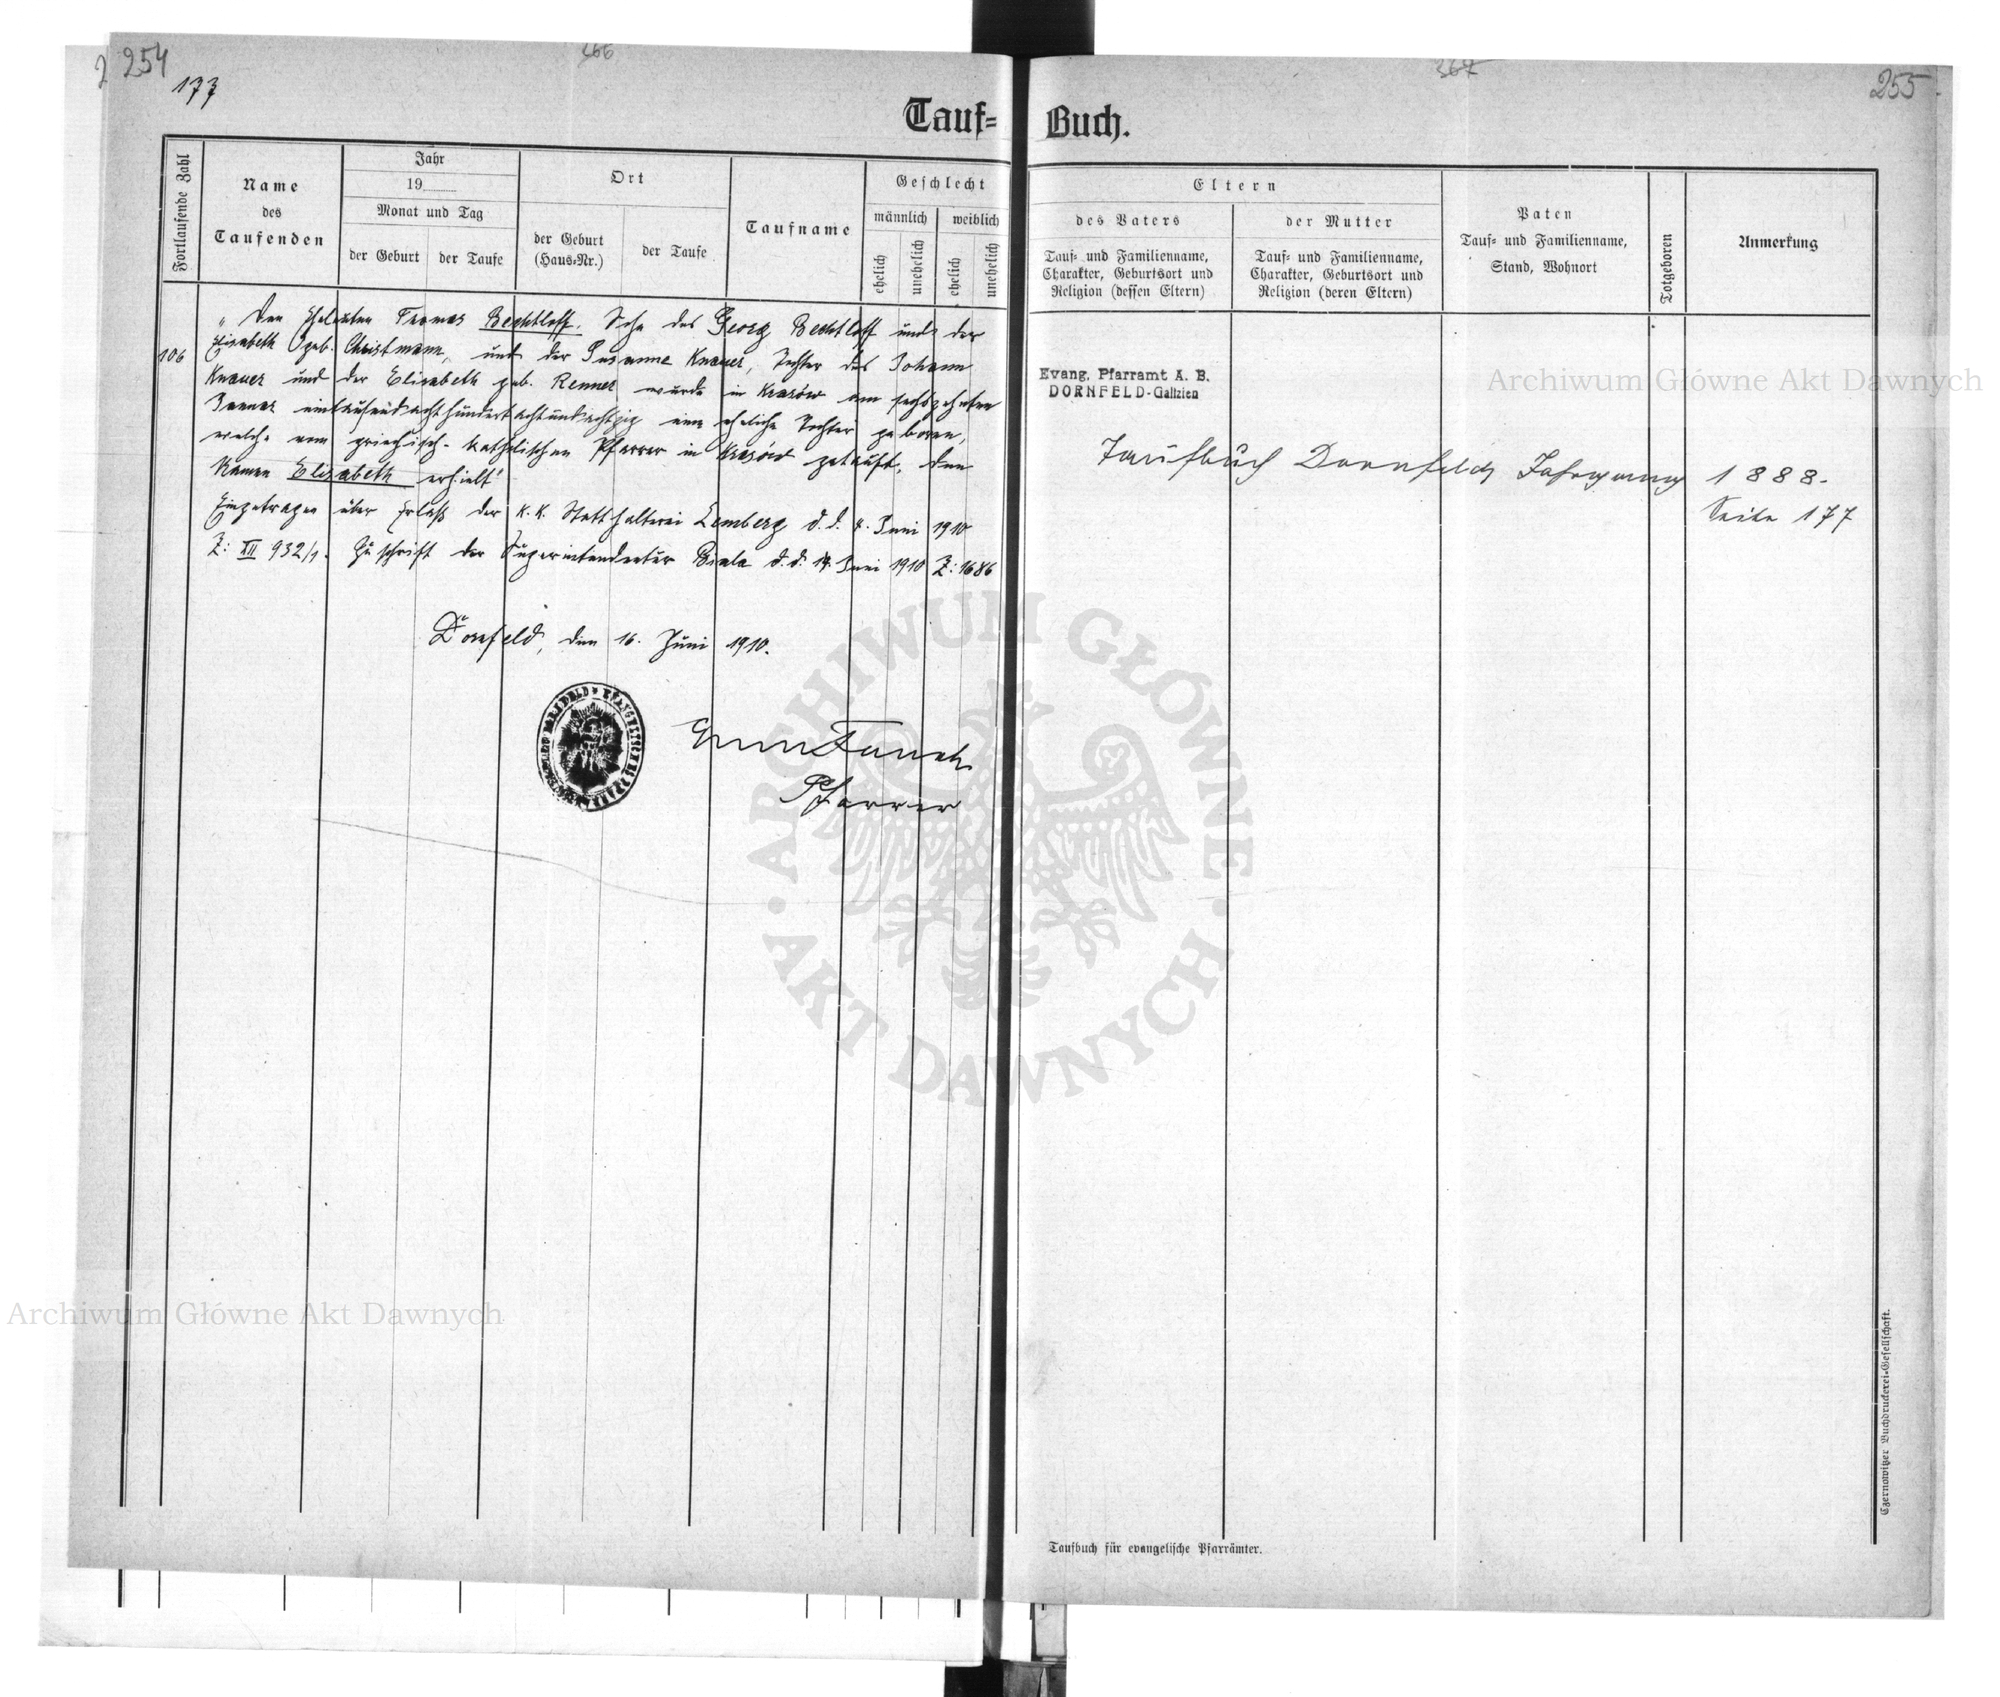 254
177
366
367
255
Tauf= Buch.
Fortlaufende Zahl
Name
des
Taufenden
Jahr
19
Monat und Tag
der Geburt
der Taufe
Ort
der Geburt
(Haus=Nr.)
der Taufe
Taufname
Geschlecht
männlich
weiblich
ehelich
unehelich
ehelich
unehelich
Eltern
des Vaters
Tauf= und Familienname,
Charakter, Geburtsort und
Religion (dessen Eltern)
der Mutter
Tauf= und Familienname,
Charakter, Geburtsort und
Religion (deren Eltern)
Paten
Tauf= und Familienname,
Stand, Wohnort
Totgeboren
Anmerkung
106
„Den Eheleuten Thomas Bechtloff, Sohn des Georg Bechtloff und der
Elisabeth geb. Christmann, und der Susanne Knauer, Tochter des Johann
Knauer und der Elisabeth geb. Renner wurde in Krasów am sechszehnten
Jänner eintausendachthundertachtundachtzig eine eheliche Tochter geboren,
welche vom griechisch-katholischen Pfarrer in Krasów getauft, den
Namen Elisabeth erhielt"
Eingetragen über Erlaß der K. K. Statthalterei Lemberg d. d. 4. Juni 1910
Z: XII 932/1. Zuschrift der Superintendentur Biala d. d. 14. Juni 1910 Z: 1686
Dornfeld, den 16. Juni 1910.
Pfarrer
Evang. Pfarramt A. B.
DORNFELD-Galizien
Taufbuch Dornfeld Jahrgang 1888.
Seite 177
Archiwum Główne Akt Dawnych
ARCHIWUM GŁÓWNE
AKT DAWNYCH
Archiwum Główne Akt Dawnych
Taufbuch für evangelische Pfarrämter.
Czernowitzer Buchdruckerei=Gesellschaft.